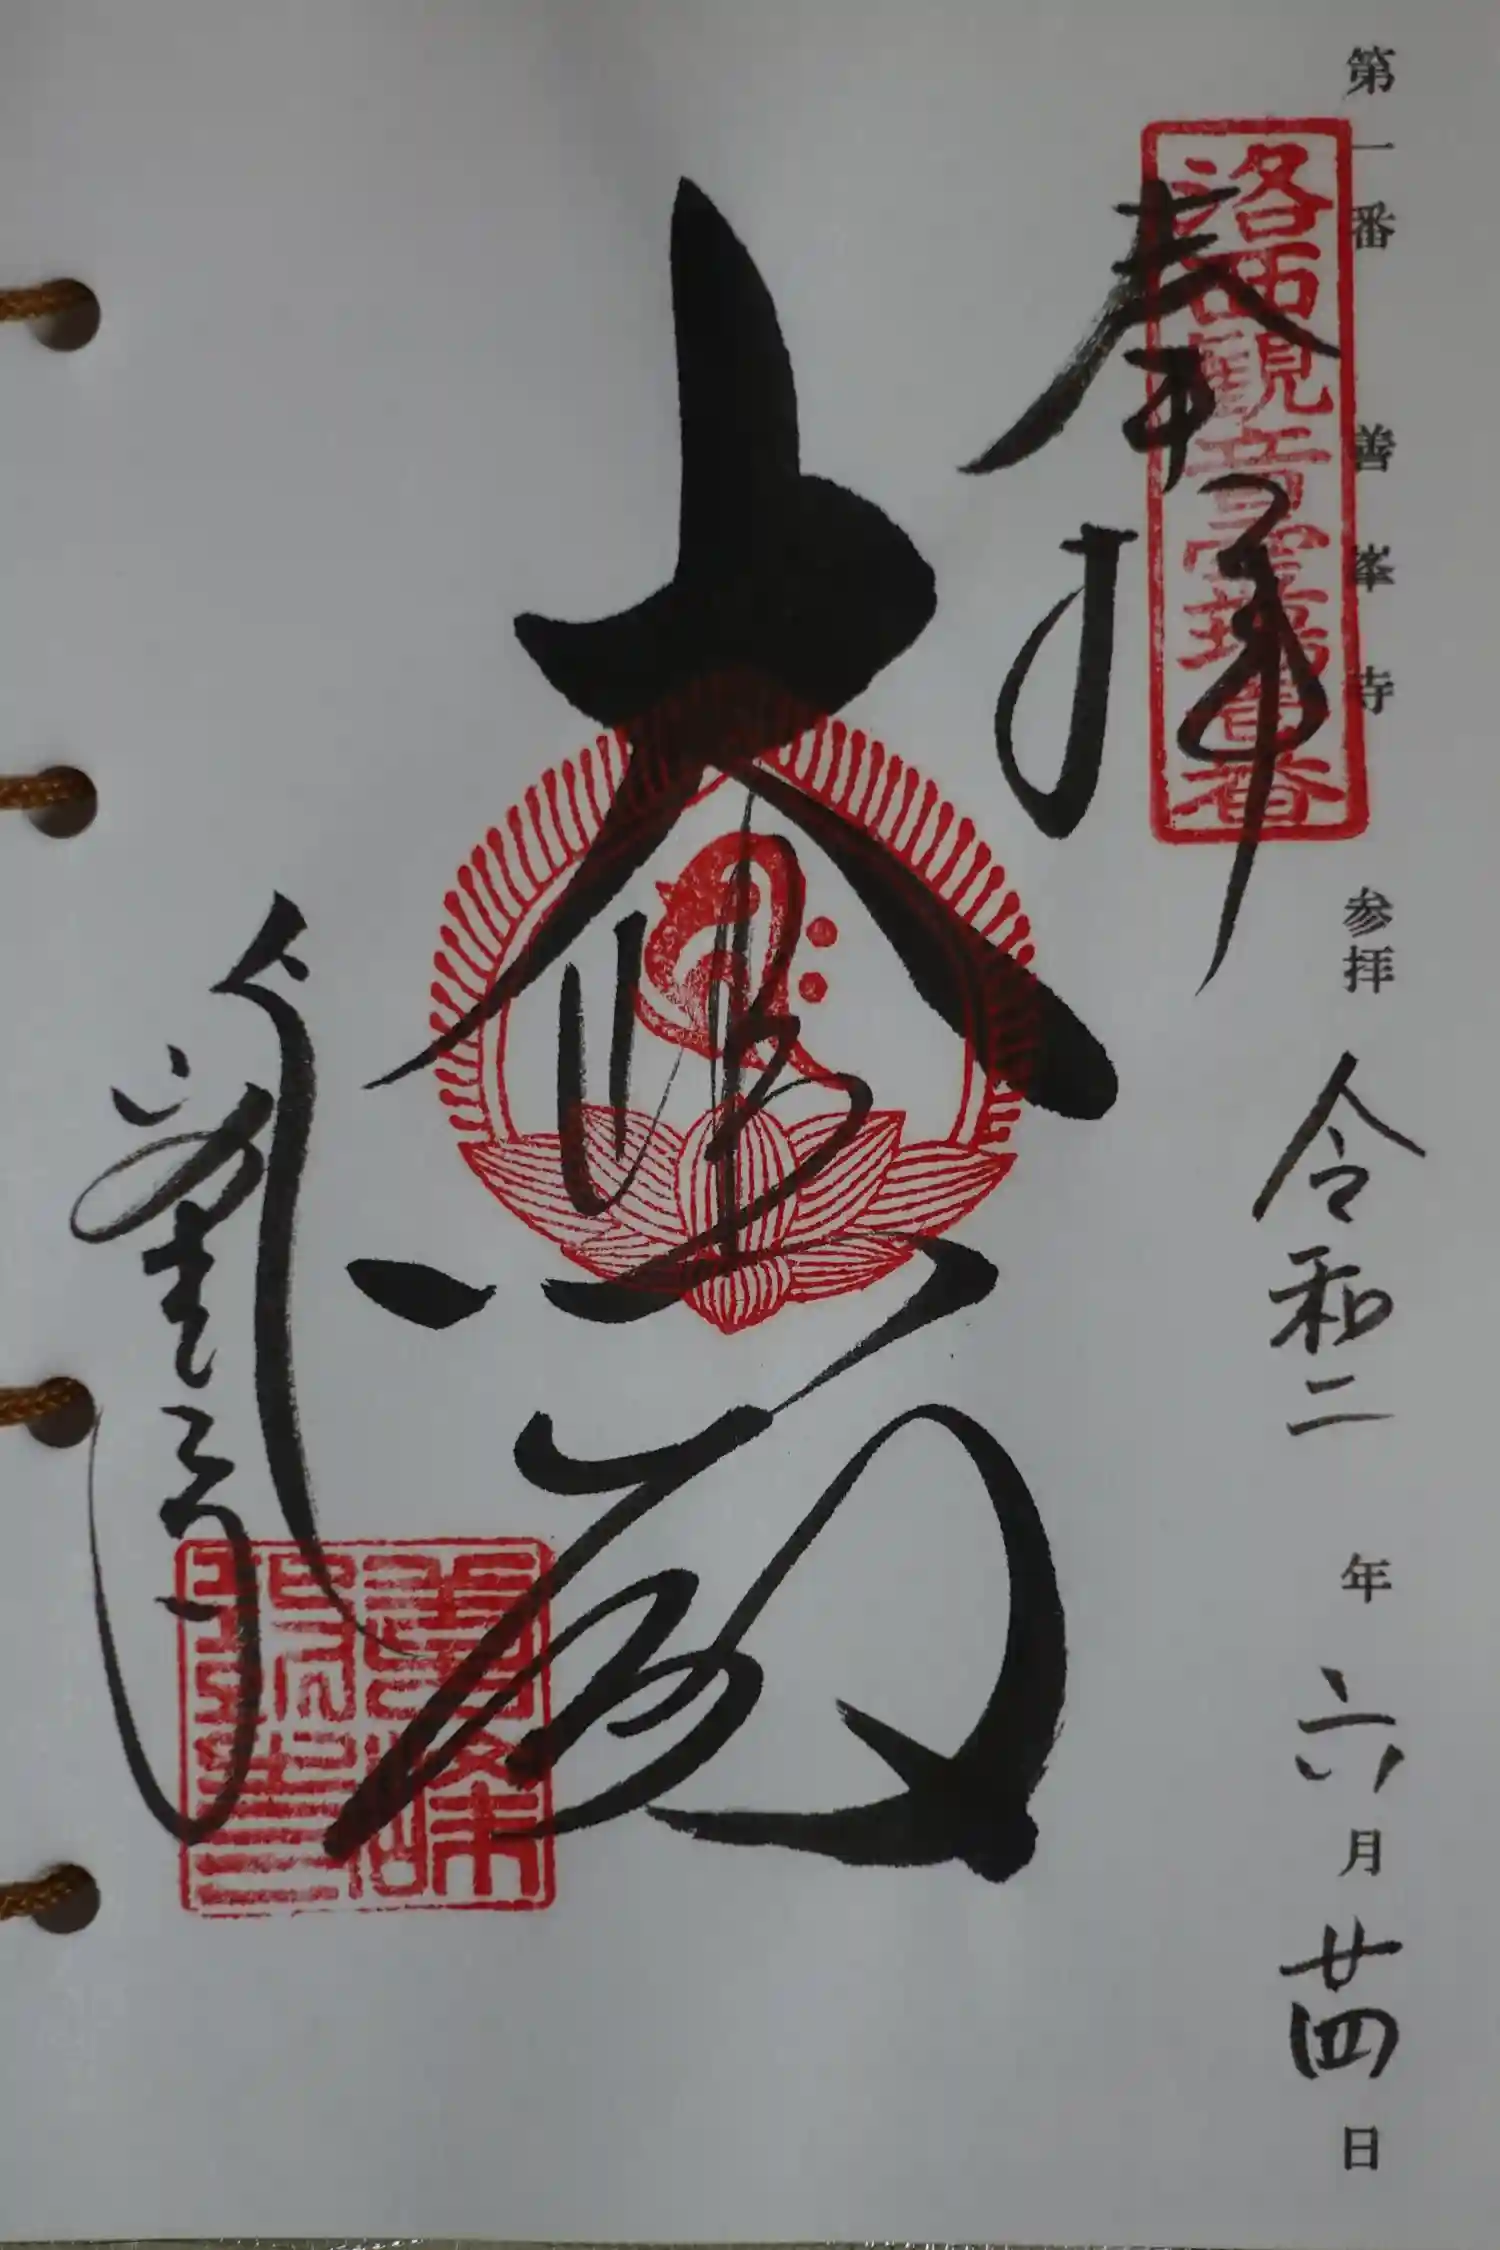 第一番 善峯寺 参拝 令和二年六月廿四日
洛西観音霊場第一番
奉拝
大悲殿
善峯寺